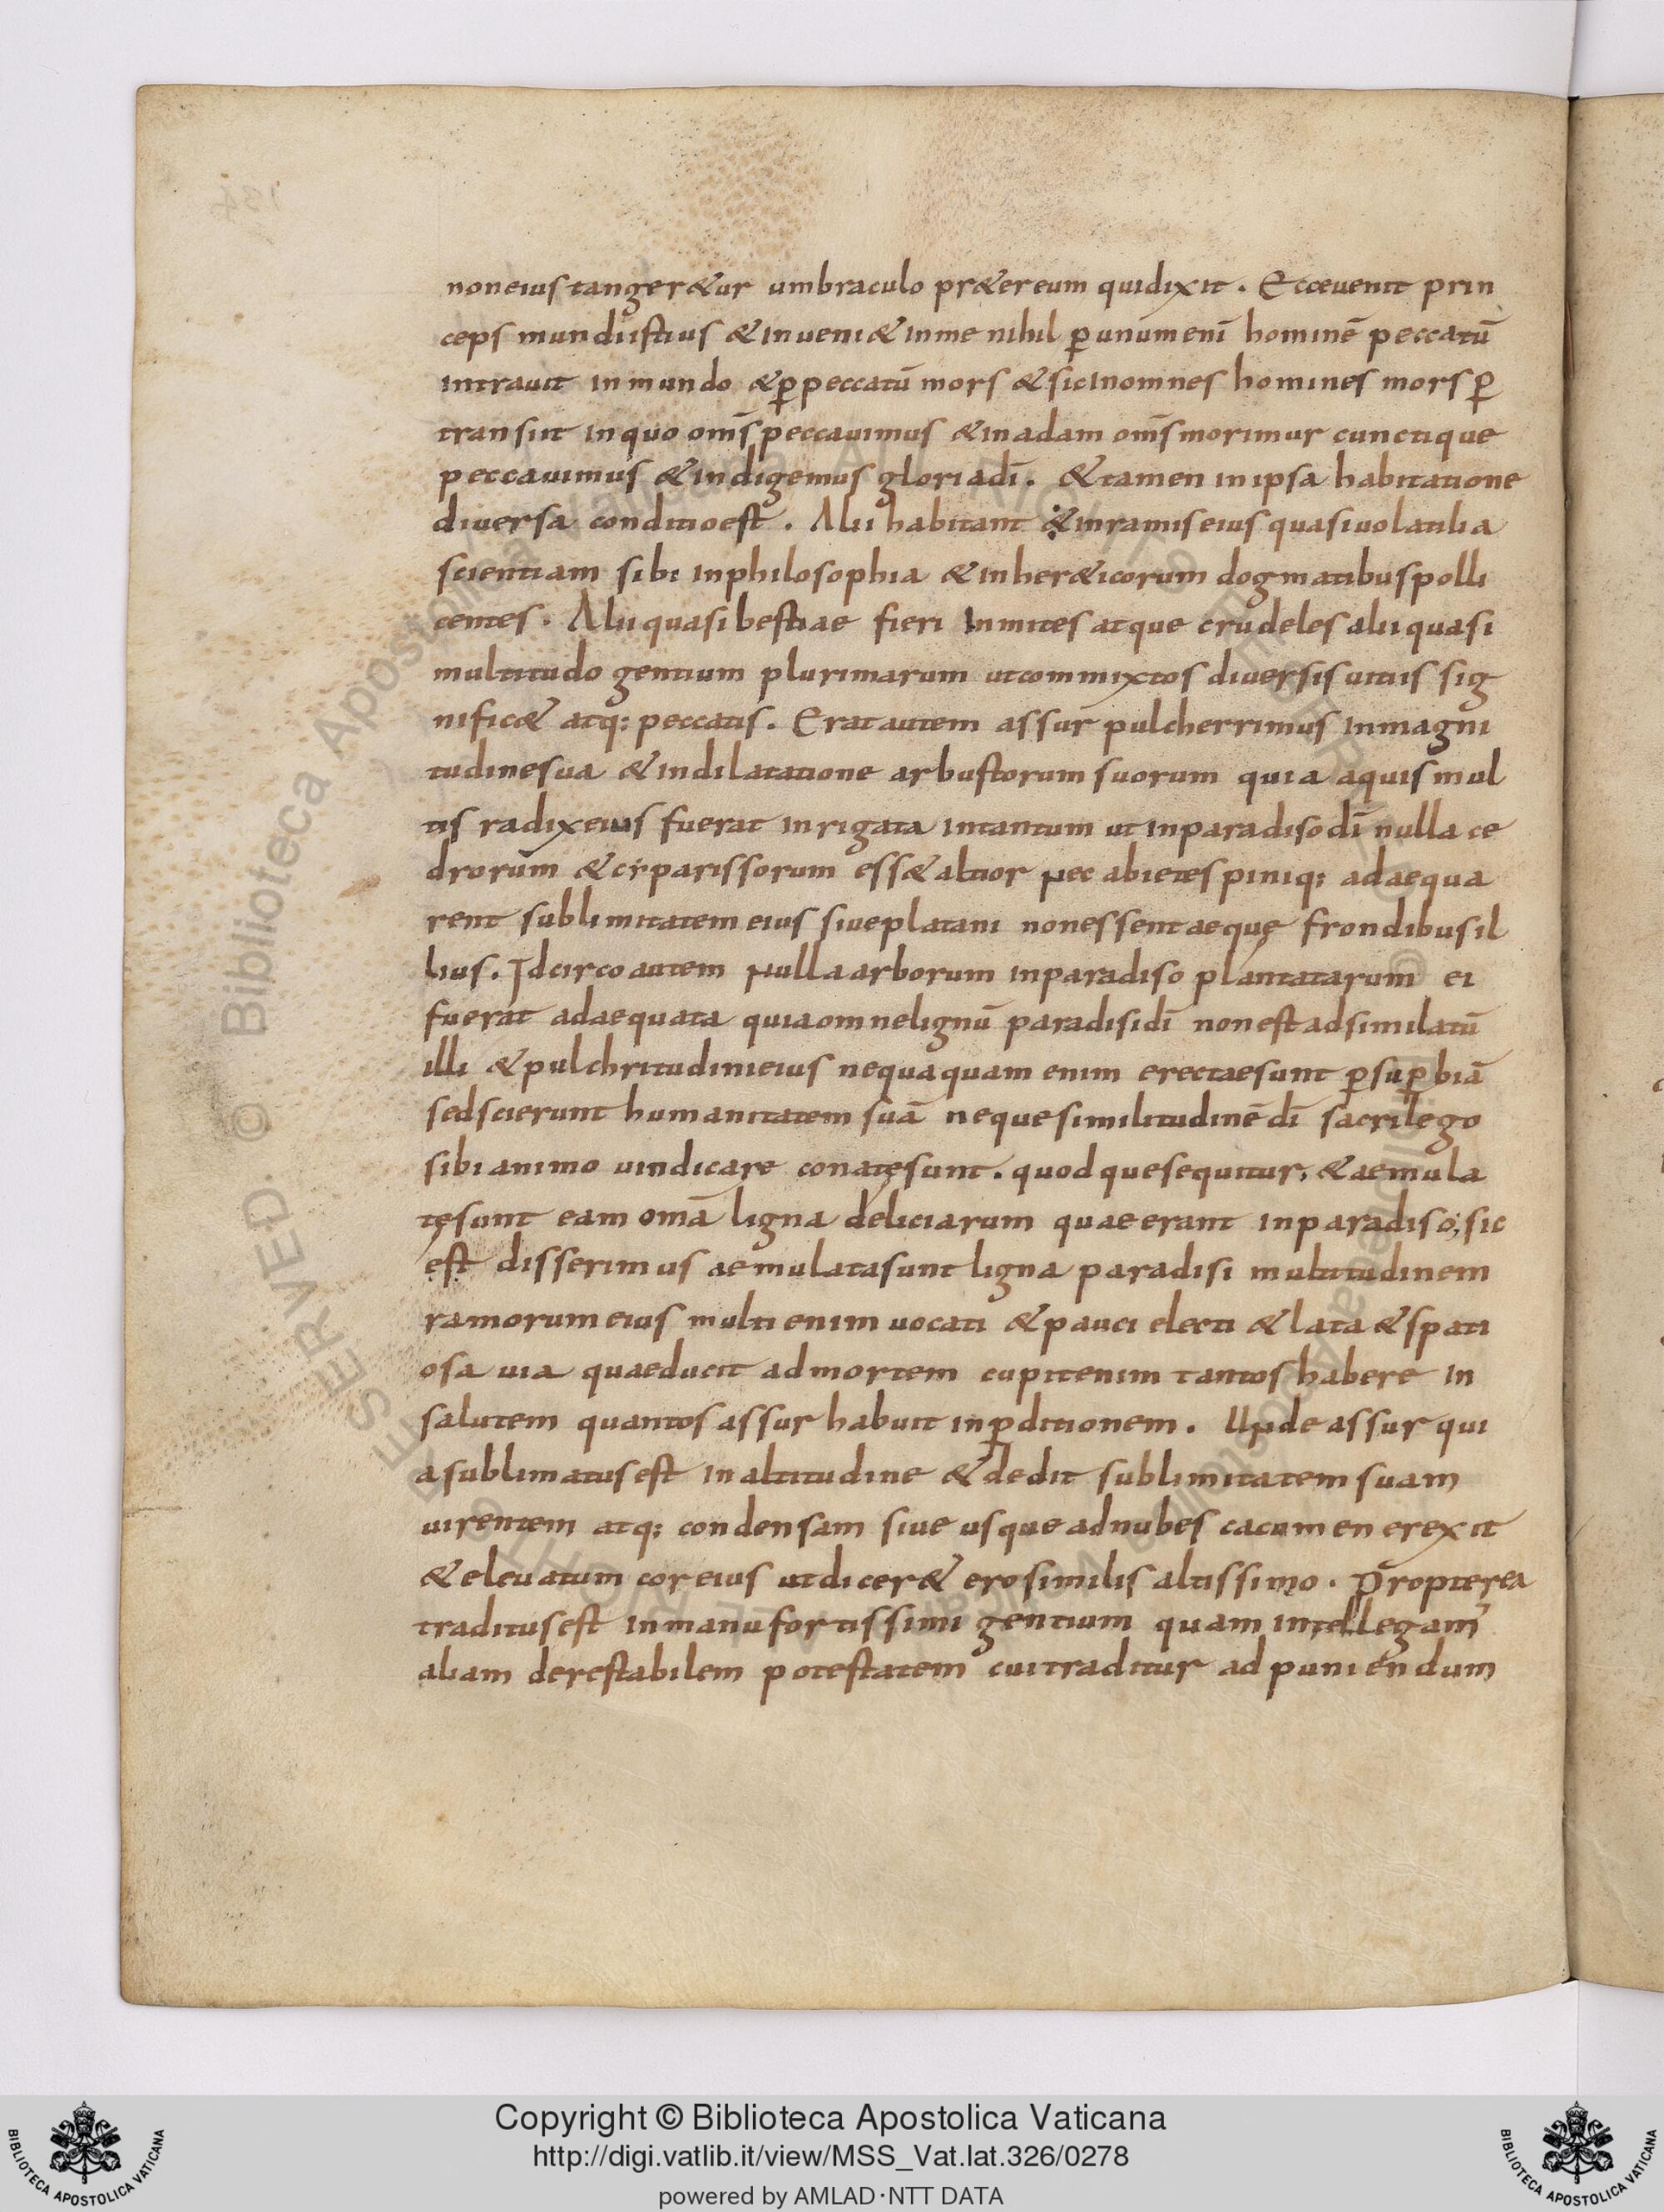 noneius tanger&ur umbraculo pr&ereum quidixit. Ecceuenit prin
ceps mundiistius & inueni& inme nihil p̄ unum enī hominē peccatū
intrauit inmundo & p̄ peccatū mors & sicinomnes homines mors p̄
transiit inquo om̄s peccauimus & inadam om̄s morimur cunctique
peccauimus & indigemus gloriadī. & tamen inipsa habitatione
diuersa conditioest. Alii habitant & inramiseius quasiuolatilia
scientiam sibi inphilosophia & inher&icorum dogmatibuspolli
centes. Alii quasibestiae fieri Inmites atque crudeles alii quasi
multitudo gentium plurimarum utcommixtos diuersisuitiis sig
nific& atq; peccatis. Erat autem assur pulcherrimus inmagni
tudinesua & indilatatione arbustorum suorum quia aquis mul
tis radixeius fuerat inrigata intantum ut inparadisodī nulla ce
drorum & cẏparissorum ess& altior nec abietes piniq; adaequa
rent sublimitatem eius siueplatani nonessent aequę frondibus il
lius. Idcirco autem nulla arborum inparadiso plantatarum ei
fuerat adaequata quiaomnelignū paradisidī nonest adsimilatū
illi & pulchritudinieius nequaquam enim erectaesunt p̄sup̄biā
sedscierunt humanitatem suā neque similitudinē dī sacrilego
sibi animo uindicare conatęsunt. quodquesequitur, & aemula
tęsunt eam om̄a ligna deliciarum quae erant inparadiso; sic
est disserimus aemulatasunt ligna paradisi multitudinem
ramorum eius multi enim uocati & pauci electi & lata & spati
osa uia quaeducit ad mortem cupitenim tantos habere in
salutem quantos assur habuit inp̄ditionem. Unde assur qui
a sublimatus est inaltitudine & dedit sublimitatem suam
uirentem atq; condensam siue usque adnubes cacumen erexit
& eleuatum cor eius ut dicer& ero similis altissimo. Propterea
traditus est inmanu fortissimi gentium quam intellegam'
aliam derestabilem potestatem cui traditur ad puniendum
Copyright © Biblioteca Apostolica Vaticana
http://digi.vatlib.it/view/MSS_Vat.lat.326/0278
powered by AMLAD·NTT DATA
BIBLIOTECA APOSTOLICA VATICANA
BIBLIOTECA APOSTOLICA VATICANA